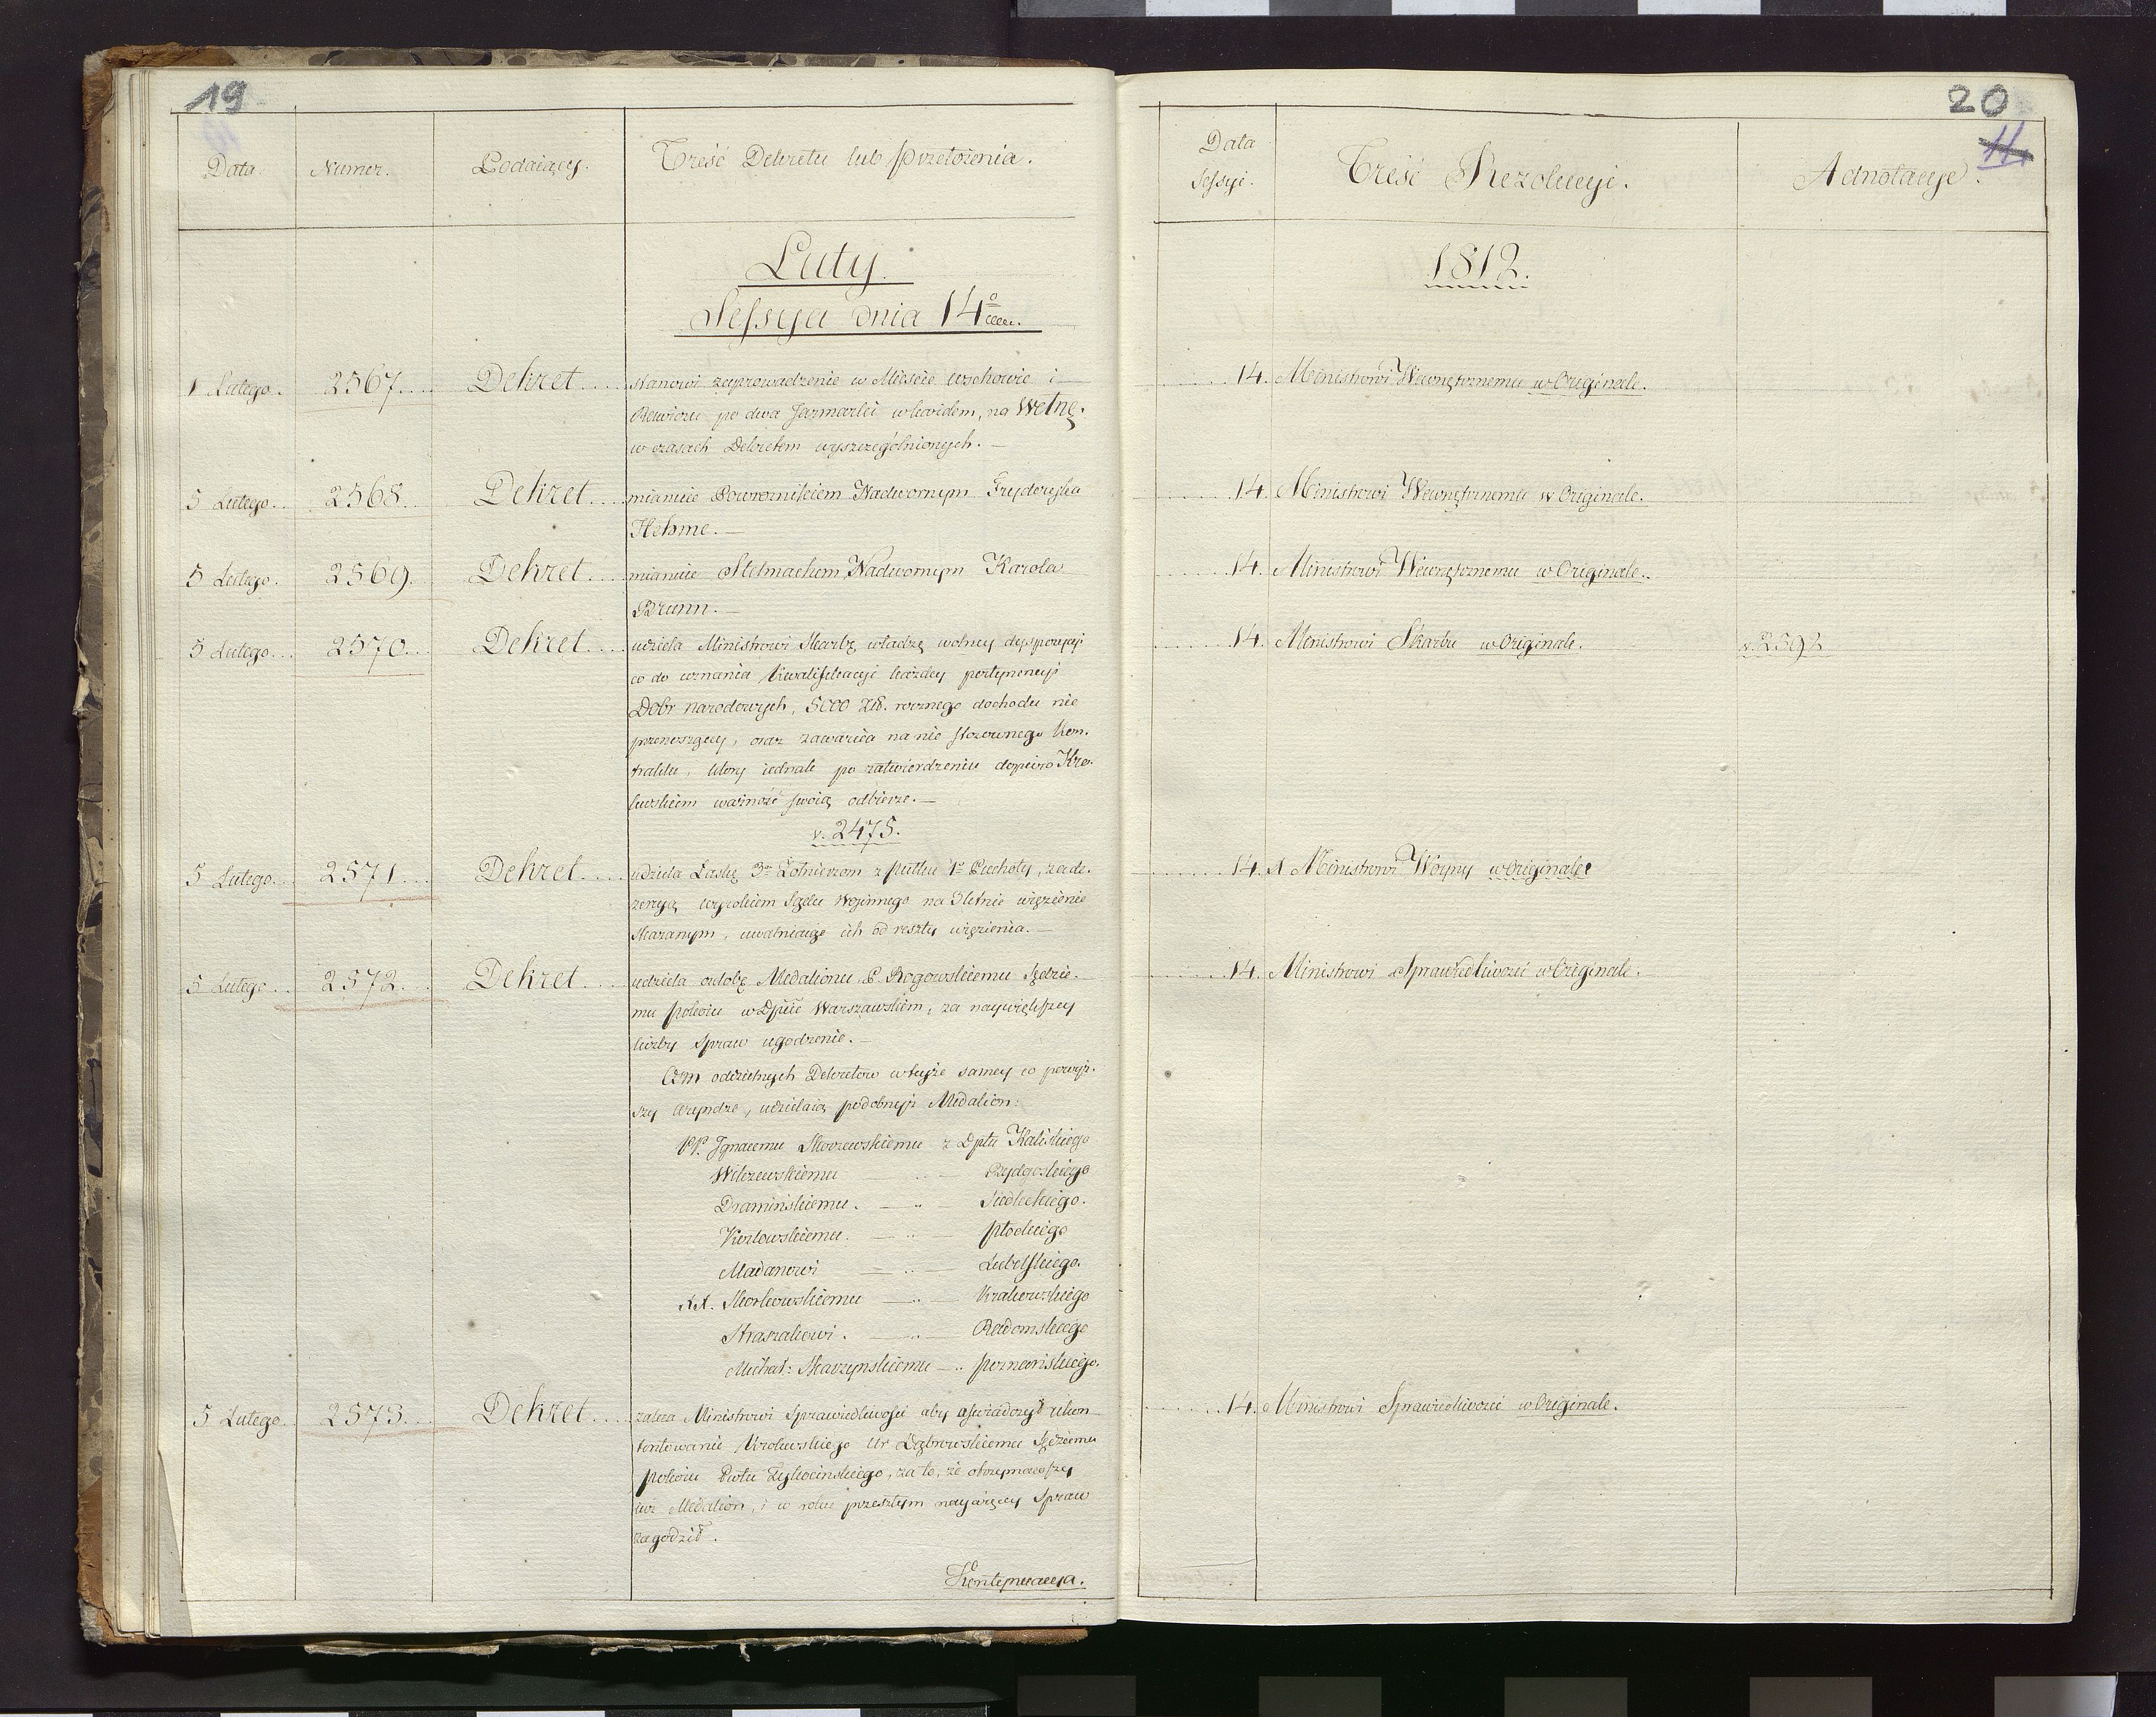 19
Data. Numer. Podaiący. Treść Dekretu lub przełożenia.
Luty.
Sessya dnia 14º
1 Lutego. 2567. Dekret stanowi zaprowadzenie w Mieście Wschowie i
Rawiczu po dwa Jarmarki w każdem, na Wełnę.
w czasach Dekretem wyszczególnionych. —
5 Lutego. 2568. Dekret mianuie Powroznikiem Nadwornym Fryderyka
Hehme. —
5 Lutego. 2569. Dekret mianuie Stelmachem Nadwornym Karola
Brunn. —
5 Lutego. 2570. Dekret udziela Ministrowi Skarbu władzę wolney dyspozycyi
co do uznania kwalifikacyi każdey pertynencyi
Dobr narodowych, 5000 Złł. rocznego dochodu nie
przenoszącey, oraz zawarcia na nie stosownego Kon-
traktu, ktory iednak po zatwierdzeniu dopiero Kro-
lewskiem ważność swoią odbierze. —
v. 2475.
5 Lutego. 2571. Dekret udziela Łaskę 3m Żołnierzom z pułku 1o Piechoty, za de-
zercyą wyrokiem Sądu Woiennego na 3 letnie więzienie
skazanym, uwalniaiąc ich od reszty więzienia. —
5 Lutego. 2572. Dekret udziela ozdobę Medalionu P. Rogowskiemu Sędzie-
mu pokoiu w Dpcie Warszawskiem, za naywiększey
liczby Spraw ugodzenie. —
odzielnych Dekretow w teyże samey co powyż-
szy udzielaią podobnyż Medalion:
PP. Ignacemu Skorzewskiemu z Dptu Kaliskiego
Wilczewskiemu — „ — Bydgoskiego
Dramińskiemu. — „ — Siedleckiego.
Kozłowskiemu. — „ — płockiego
Madanowi — „ — Lubelskiego.
XX. Skorkowskiemu — „ — Krakowskiego
Straszakowi. — „ — Radomskiego
Michał: Skarzynskiemu — „ poznańskiego.
5 Lutego. 2573. Dekret zaleca Ministrowi Sprawiedliwości aby oświadczył ukon-
tentowanie Krolewskie Ur Dąbrowskiemu Sędziemu
pokoiu Pwtu Tykocinskiego, za to, że otrzymawszy
iuż Medalion, i w roku przeszłym naywięcey Spraw
zagodził.
Kontynuacya.
20
11
Data Sessyi. Treść Rezolucyi. Adnotacye.
1812.
14. Ministrowi Wewnętrznemu w Originale.
14. Ministrowi Wewnętrznemu w Originale.
14. Ministrowi Wewnętrznemu w Originale.
14. Ministrowi Skarbu w Originale. v. 2592
14. Ministrowi Woyny w Originale
14. Ministrowi Sprawiedliwości w Originale.
14. Ministrowi Sprawiedliwości w Originale.